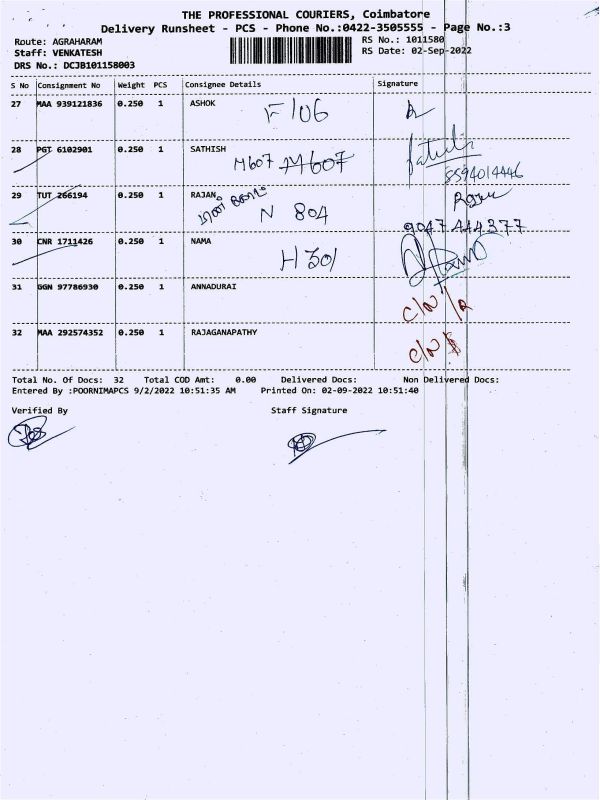 THE PROFESSIONAL COURIERS, Coimbatore
Delivery Runsheet - PCS - Phone No.:0422-3505555 - Page No.:3
Route: AGRAHARAM RS No.: 1011580
Staff: VENKATESH RS Date: 02-Sep-2022
DRS No.: DCJB101158003
S No Consignment No Weight PCS Consignee Details Signature
27 MAA 939121836 0.250 1 ASHOK F 106
28 PGT 6102901 0.250 1 SATHISH M607 M607
8594014446
29 TUT 266194 0.250 1 RAJAN N 804
9047444377
30 CNR 1711426 0.250 1 NAMA H 301
31 GGN 97786930 0.250 1 ANNADURAI C/N/R
32 MAA 292574352 0.250 1 RAJAGANAPATHY C/N
Total No. Of Docs: 32 Total COD Amt: 0.00 Delivered Docs: Non Delivered Docs:
Entered By :POORNIMAPCS 9/2/2022 10:51:35 AM Printed On: 02-09-2022 10:51:40
Verified By Staff Signature